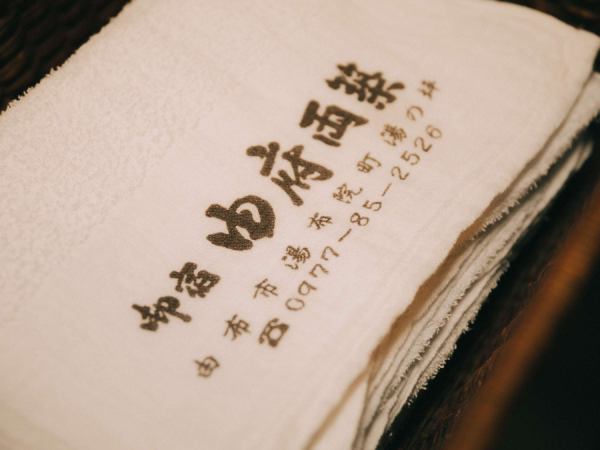 御宿 由府両築
由布市湯布院町湯の坪
☎0977-85-2526